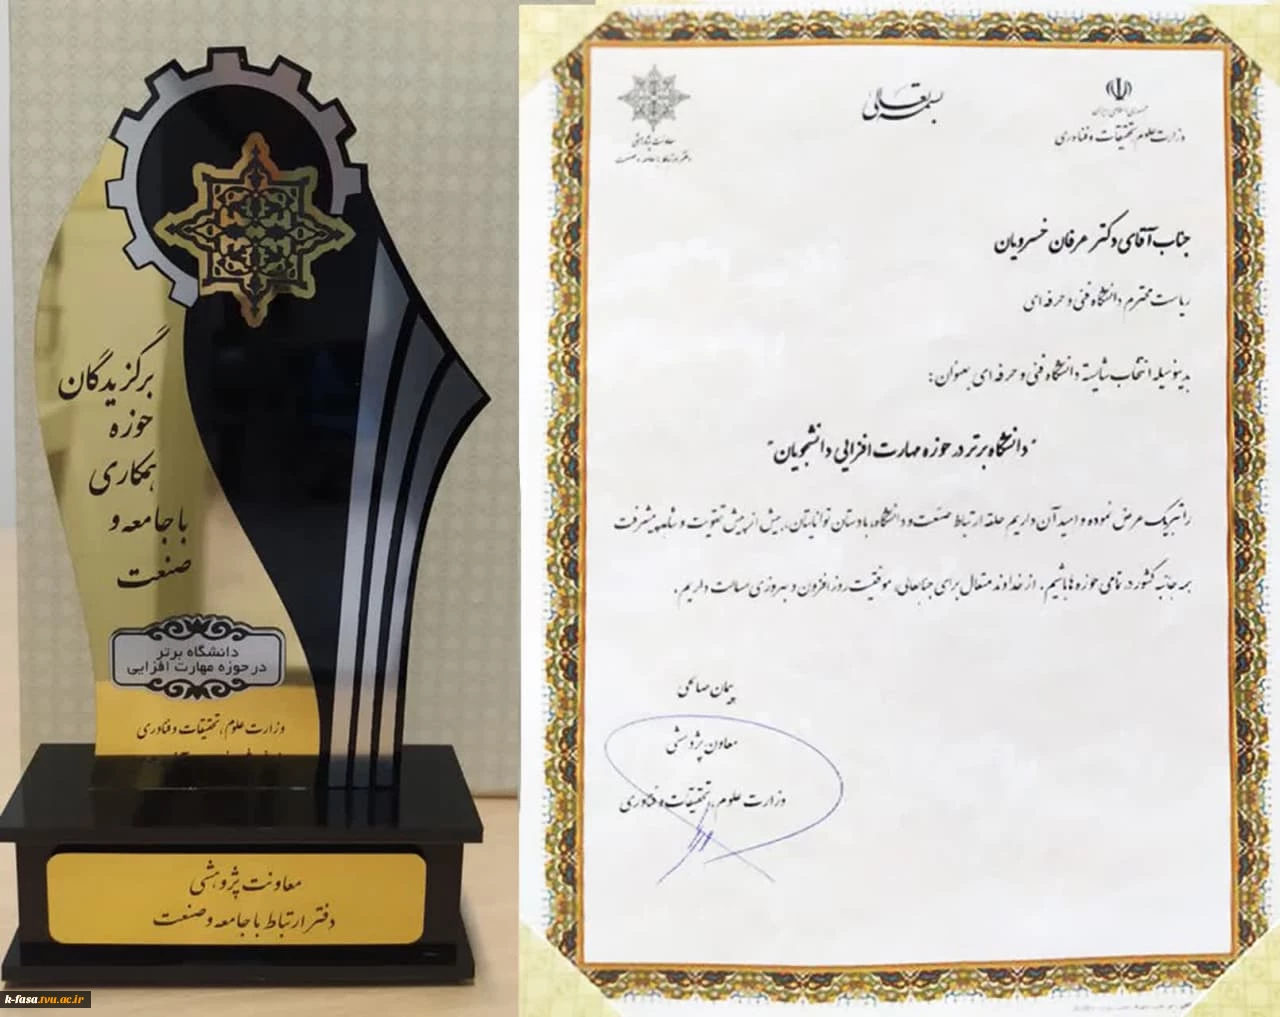 برگزیدگان
حوزه
همکاری
با جامعه و
صنعت
دانشگاه برتر
در حوزه مهارت افزایی
وزارت علوم، تحقیقات و فناوری
معاونت پژوهشی
دفتر ارتباط با جامعه و صنعت
k-fasa.tvu.ac.ir
بسمه تعالی
جمهوری اسلامی ایران
وزارت علوم تحقیقات و فناوری
معاونت پژوهشی
دفتر ارتباط با جامعه و صنعت
جناب آقای دکتر عرفان خسرویان
ریاست محترم دانشگاه فنی و حرفه ای
بدینوسیله انتخاب شایسته دانشگاه فنی و حرفه ای بعنوان :
"دانشگاه برتر در حوزه مهارت افزایی دانشجویان"
را تبریک عرض نموده و امید آن داریم حلقه ارتباط صنعت و دانشگاه، با دستان توانایتان، بیش از پیش تقویت و شاهد پیشرفت
همه جانبه کشور در تمامی حوزه ها باشیم . از خداوند متعال برای جنابعالی، موفقیت روزافزون و بهروزی مسالت داریم .
پیمان صالحی
معاون پژوهشی
وزارت علوم، تحقیقات و فناوری